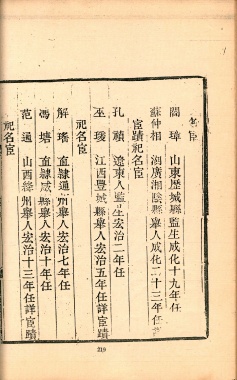 名宦
閻璋 山東歷城縣監生成化十九年任
蘇仲相 湖廣湘陰縣舉人成化二十三年任
宦蹟祀名宦
孔禎 遼東人監生宏治二年任
巫瑷 江西豐城縣舉人宏治五年任詳宦蹟
祀名宦
解瑤 直隸通州舉人宏治七年任
馮塘 直隸咸縣舉人宏治十年任
范通 山西絳州舉人宏治十三年任詳宦蹟
祀名宦
219